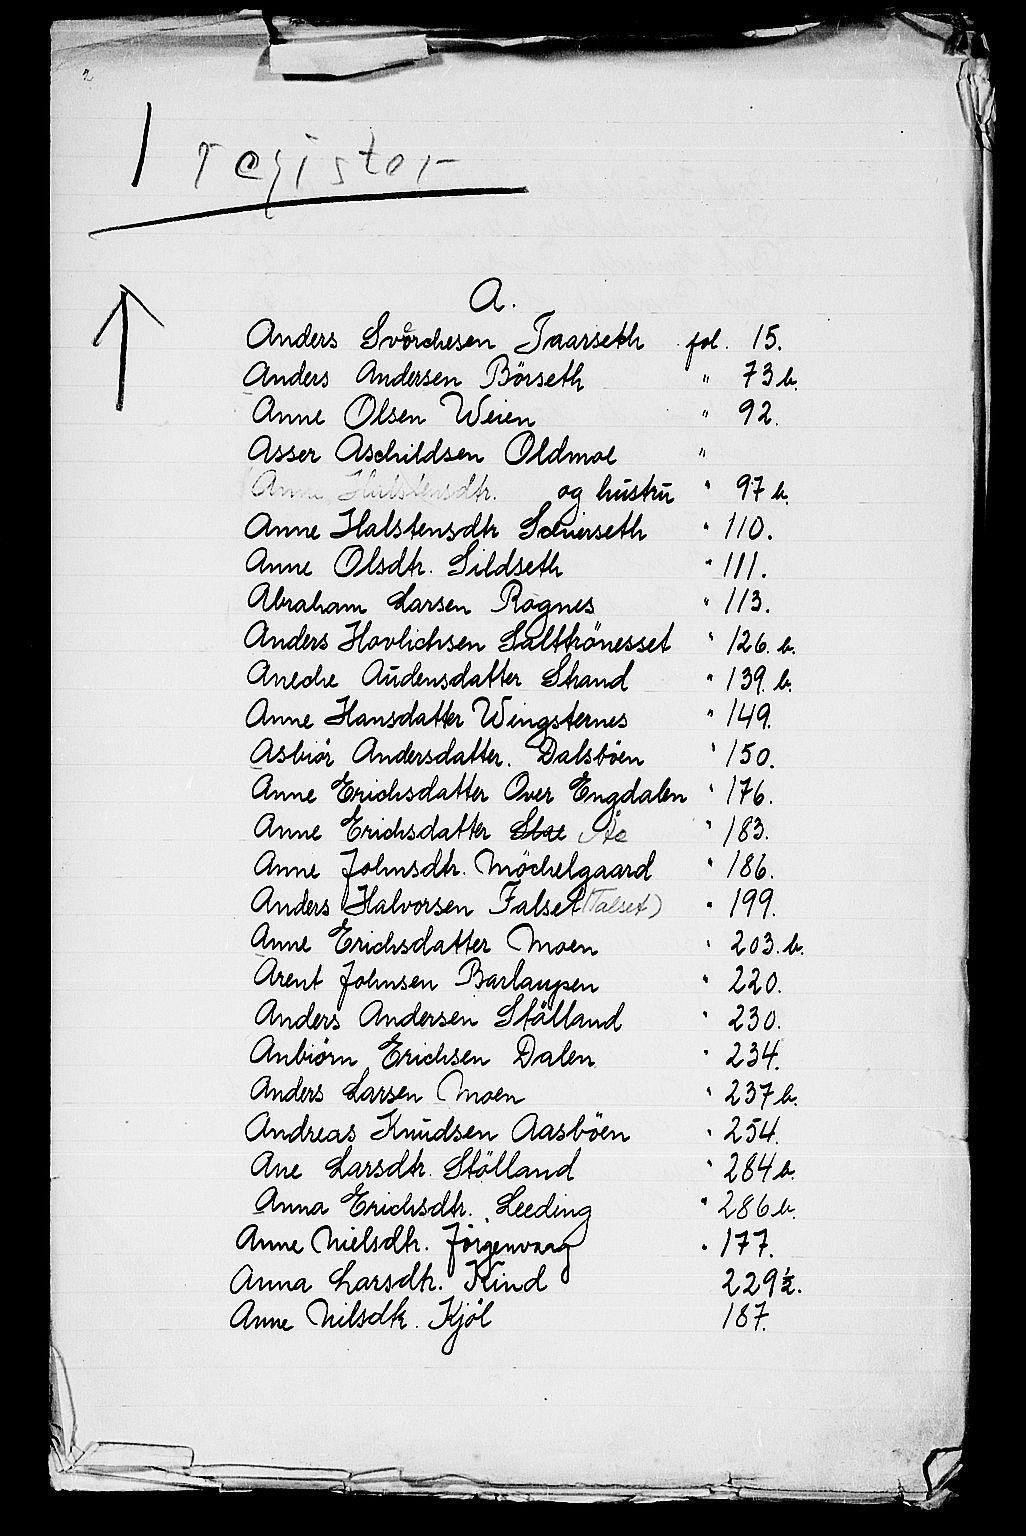 1 register
A.
Anders Svörchesen Taarseth fol. 15.
Anders Andersen Börseth " 73 b.
Anne Olsen Weien " 92.
Asser Aschildsen Oldmoe "
Anne Halstensdtr. og hustru " 97 b.
Anne Halstensdtr Schierseth " 110.
Anne Olsdtr. Sildseth " 111.
Abraham Larsen Rognes " 113.
Anders Hovlichsen Saltkrönesset " 126. b.
Aneche Audensdatter Strand " 139. b.
Anne Hansdatter Wingsternes " 149.
Asbiör Andersdatter. Dalsböen " 150.
Anne Erichsdatter Over Engdalen " 176.
Anne Erichsdatter Stre Åe " 183.
Anne Johnsdtr. Möchelgaard " 186.
Anders Halvorsen Falset (Talset) " 199.
Anne Erichsdatter Moen " 203. b.
Arent Johnsen Barlaupen " 220.
Anders Andersen Stölland " 230.
Anbiörn Erichsen Dalen " 234.
Anders Larsen Moen " 237 b.
Andreas Knudsen Aasböen " 254.
Ane Larsdtr. Stölland " 284 b.
Anna Erichsdtr. Leeding " 286 b.
Anne Nielsdtr. Jörgenvaag " 177.
Anna Larsdtr. Kind 229½.
Anne Nilsdtr. Kjöl 187.